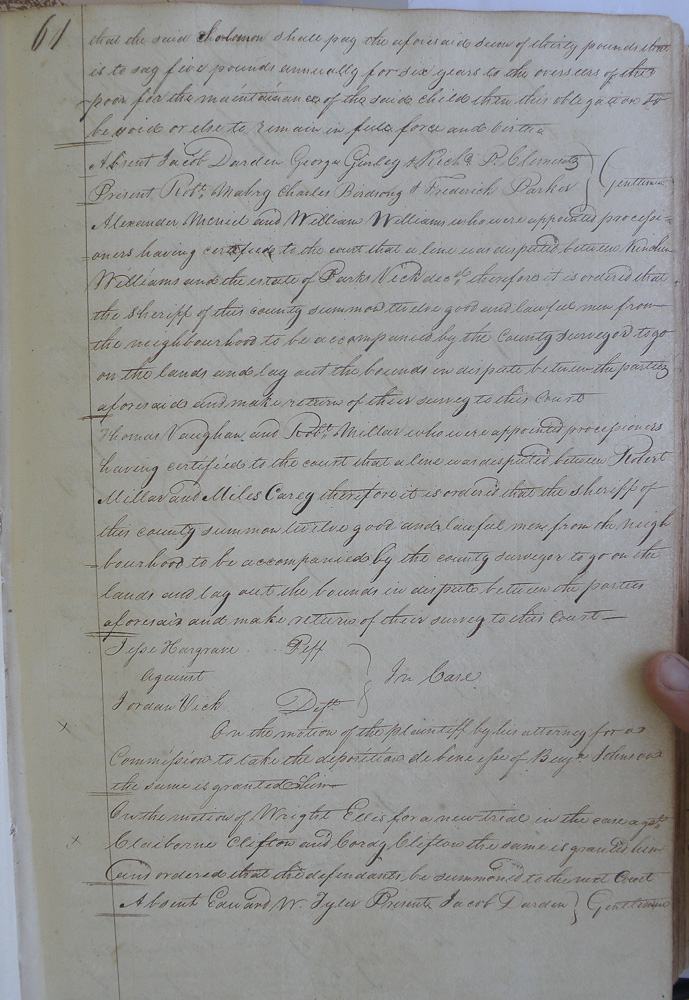 61
that the said Cholomon shall pay the aforesaid sum of thirty pounds that
is to say five pounds annually for six years to the overseers of the
poor for the maintainance of the said child then this obligation to
be void or else to remain in full force and virtue
Absent Jacob Darden George Gurley & Richd. P. Clements
Present Robt. Mabry Charles Birdsong & Frederick Parker } Gentlemen
Alexander Mcniel and William Williams who were appointed processi-
-oners having certified to the court that a line was disputed between Kinchen
Williams and the estate of Parks Vick decd. therefore it is ordered that
the Sheriff of this county summon twelve good and lawful men from
the neighbourhood to be accompanied by the County surveyor to go
on the lands and lay out the bounds in dispute between the parties
aforesaid and make return of their survey to this Court
Thomas Vaughan and Robt. Millar who were appointed processioners
having certified to the court that a line was disputed between Robert
Millar and Miles Carey therefore it is ordered that the Sheriff of
this county summon twelve good and lawful men from the neigh
-bourhood to be accompanied by the county surveyor to go on the
lands and lay out the bounds in dispute between the parties
aforesaid and make return of their survey to this Court
Jesse Hargrave Peff
against } In Case
Jordan Vick Deft.
x On the motion of the plaintiff by his attorney for a
Commission to take the deposition de bene esse of Benjn. Johnson
the same is granted him
On the motion of Wright Ellis for a new trial in the case agst.
x Claiborne Clifton and Cordy Clifton the same is granted him
and ordered that the defendants be summoned to the next Court
Absent Edward W. Tyler Present Jacob Darden } Gentlemen